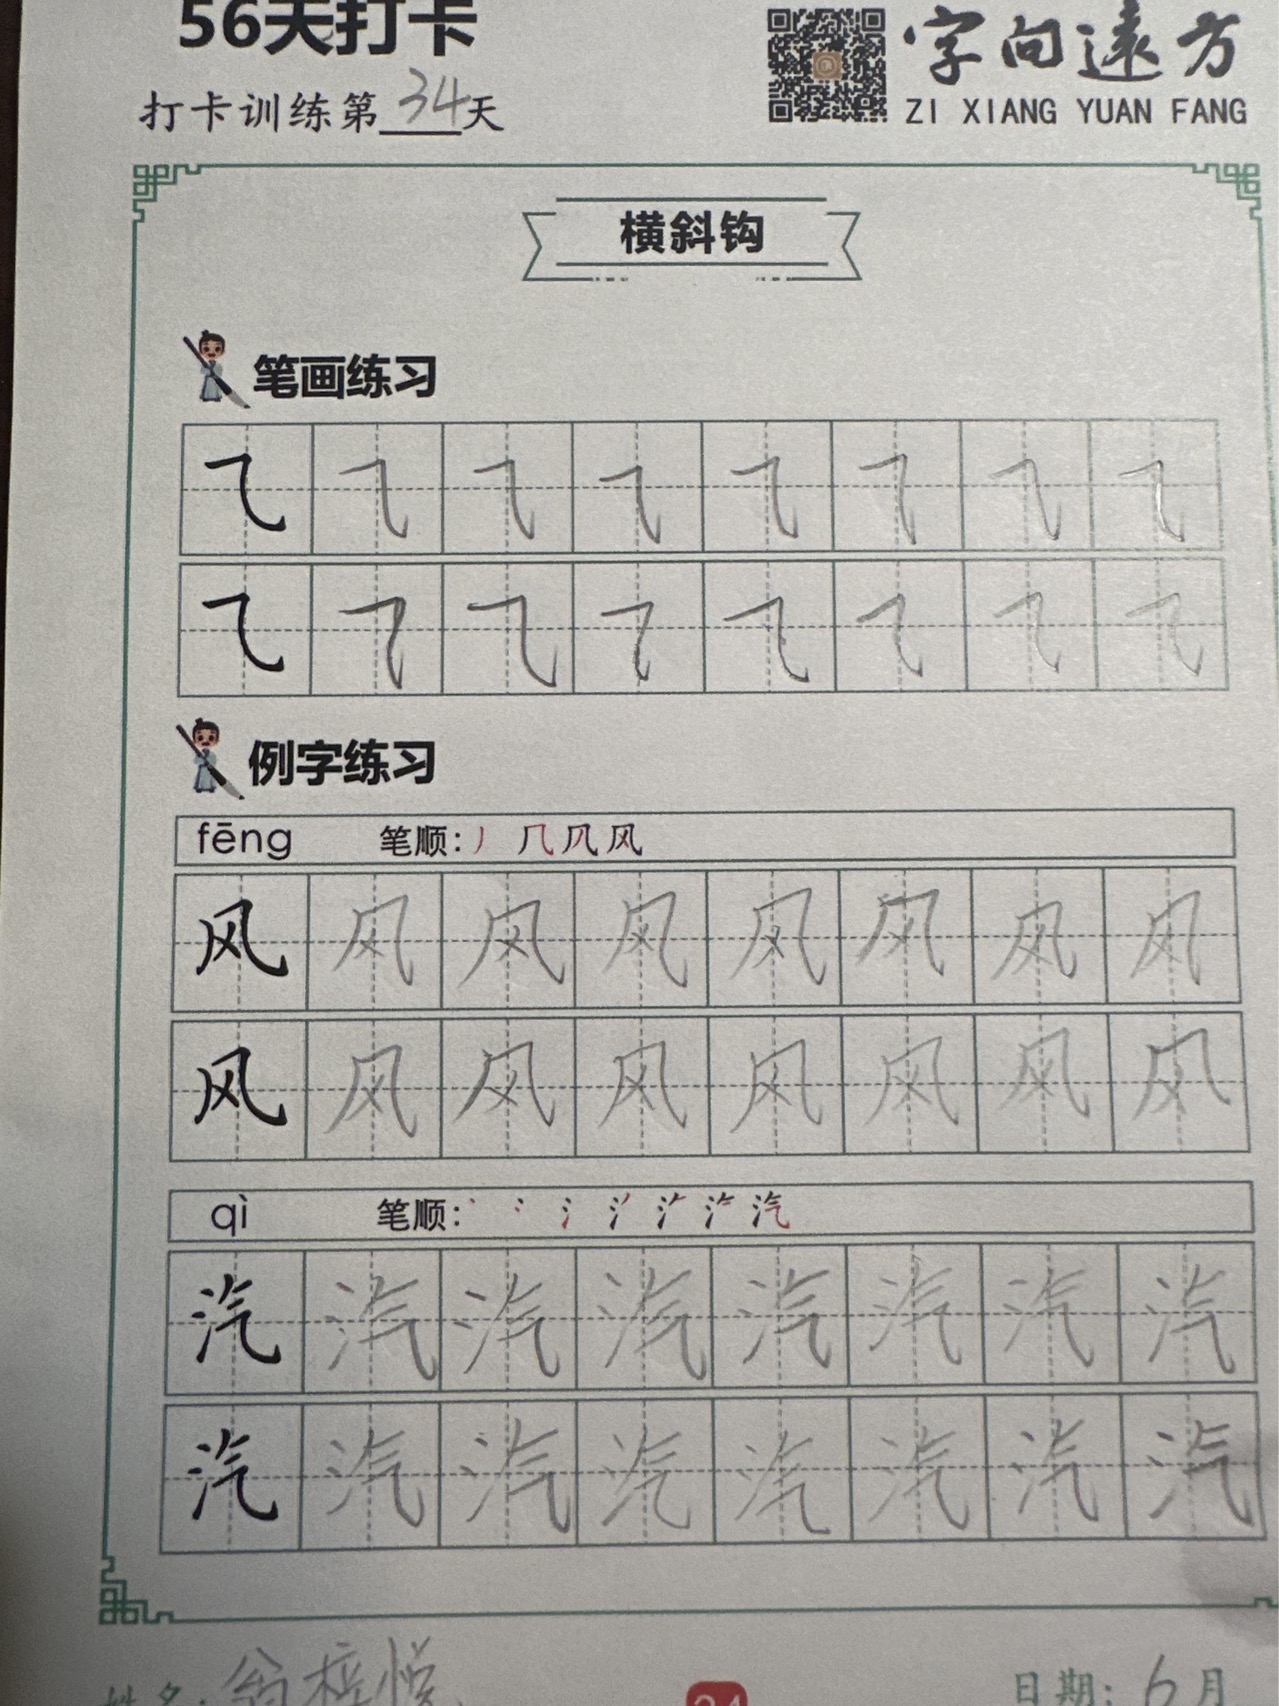 56天打卡
打卡训练第34天
字向遠方
ZI XIANG YUAN FANG
横斜钩
笔画练习
㇈ ㇈ ㇈ ㇈ ㇈ ㇈ ㇈ ㇈
㇈ ㇈ ㇈ ㇈ ㇈ ㇈ ㇈ ㇈
例字练习
fēng 笔顺：丿 几 凤 风
风 风 风 风 风 风 风 风
风 风 风 风 风 风 风 风
qì 笔顺： 汽
汽 汽 汽 汽 汽 汽 汽 汽
汽 汽 汽 汽 汽 汽 汽 汽
姓名：翁梓悦
34
日期：6月